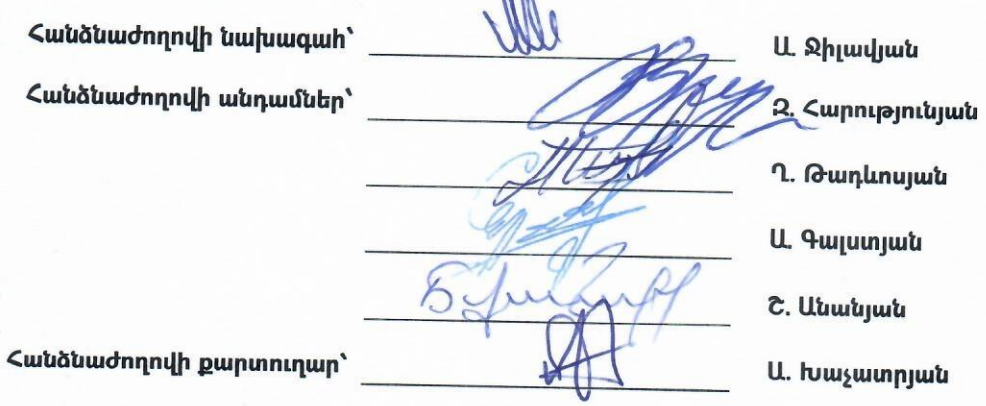 Հանձնաժողովի նախագահ՝ Ա. Ջիլավյան
Հանձնաժողովի անդամներ՝ Զ. Հարությունյան
Ղ. Թադևոսյան
Ա. Գալստյան
Շ. Անանյան
Հանձնաժողովի քարտուղար՝ Ա. Խաչատրյան